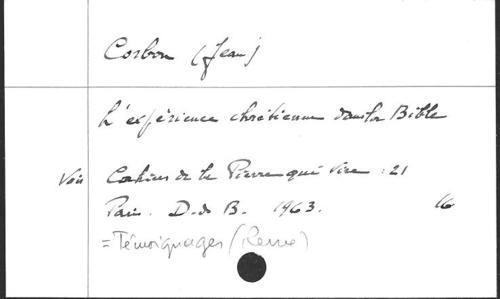 Corbon (Jean)
L'expérience chrétienne dans la Bible
Voir Cahiers de la Pierre qui Vire : 21
Paris. D. de B. 1963. 16
= Témoignages (Revue)